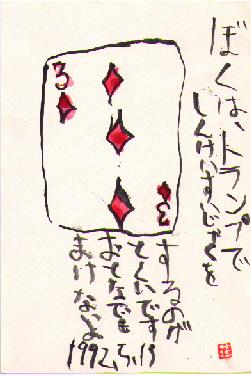 ぼくは、トランプで
しんけいすいじゃくを
するのが
とくいです
おとなでも
まけないよ
1992,5,13
3
3